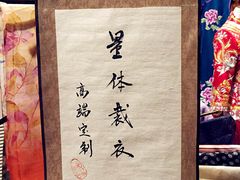 量体裁衣
高端定制